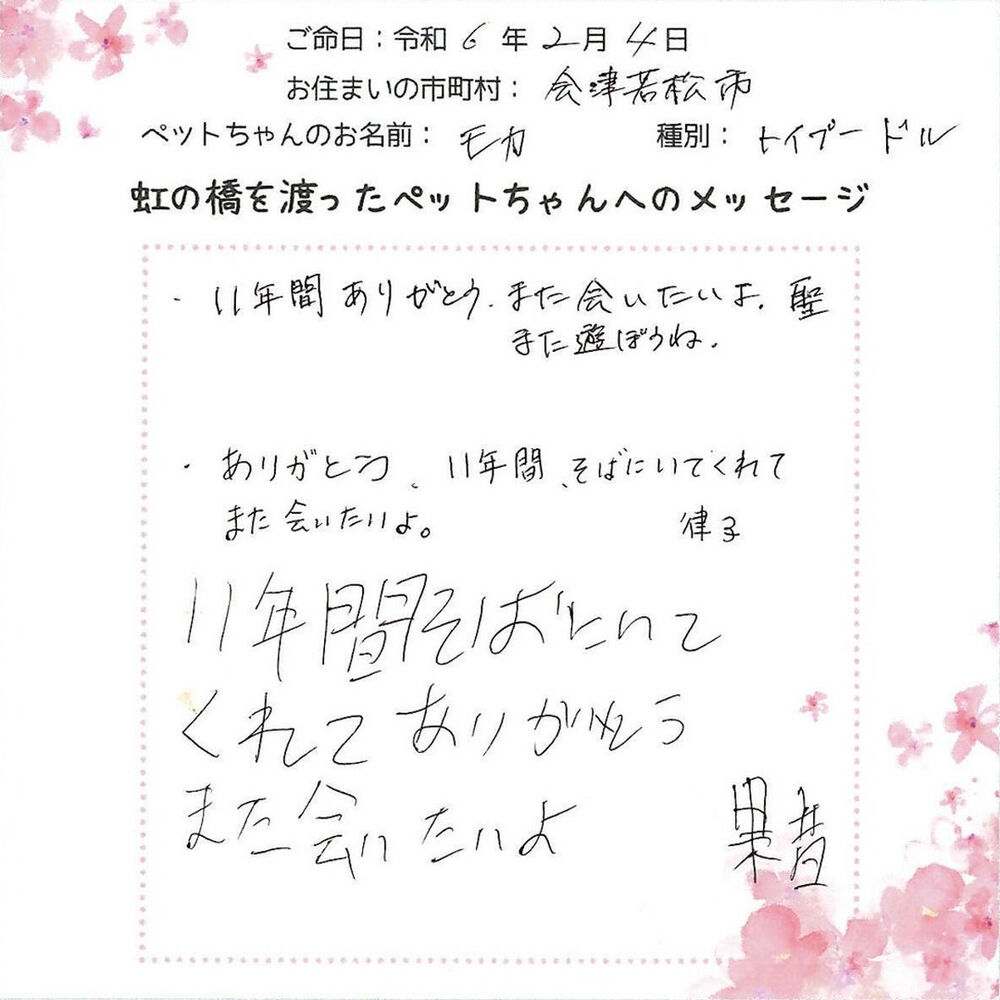 ご命日：令和 6 年 2 月 4 日
お住まいの市町村： 会津若松市
ペットちゃんのお名前： モカ 種別： トイプードル
虹の橋を渡ったペットちゃんへのメッセージ
・ 11年間 ありがとう、また会いたいよ. 聖
また遊ぼうね.
・ ありがとう、11年間、そばにいてくれて
また会いたいよ。 律子
11年間そばにいて
くれてありがとう
また会いたいよ 果音